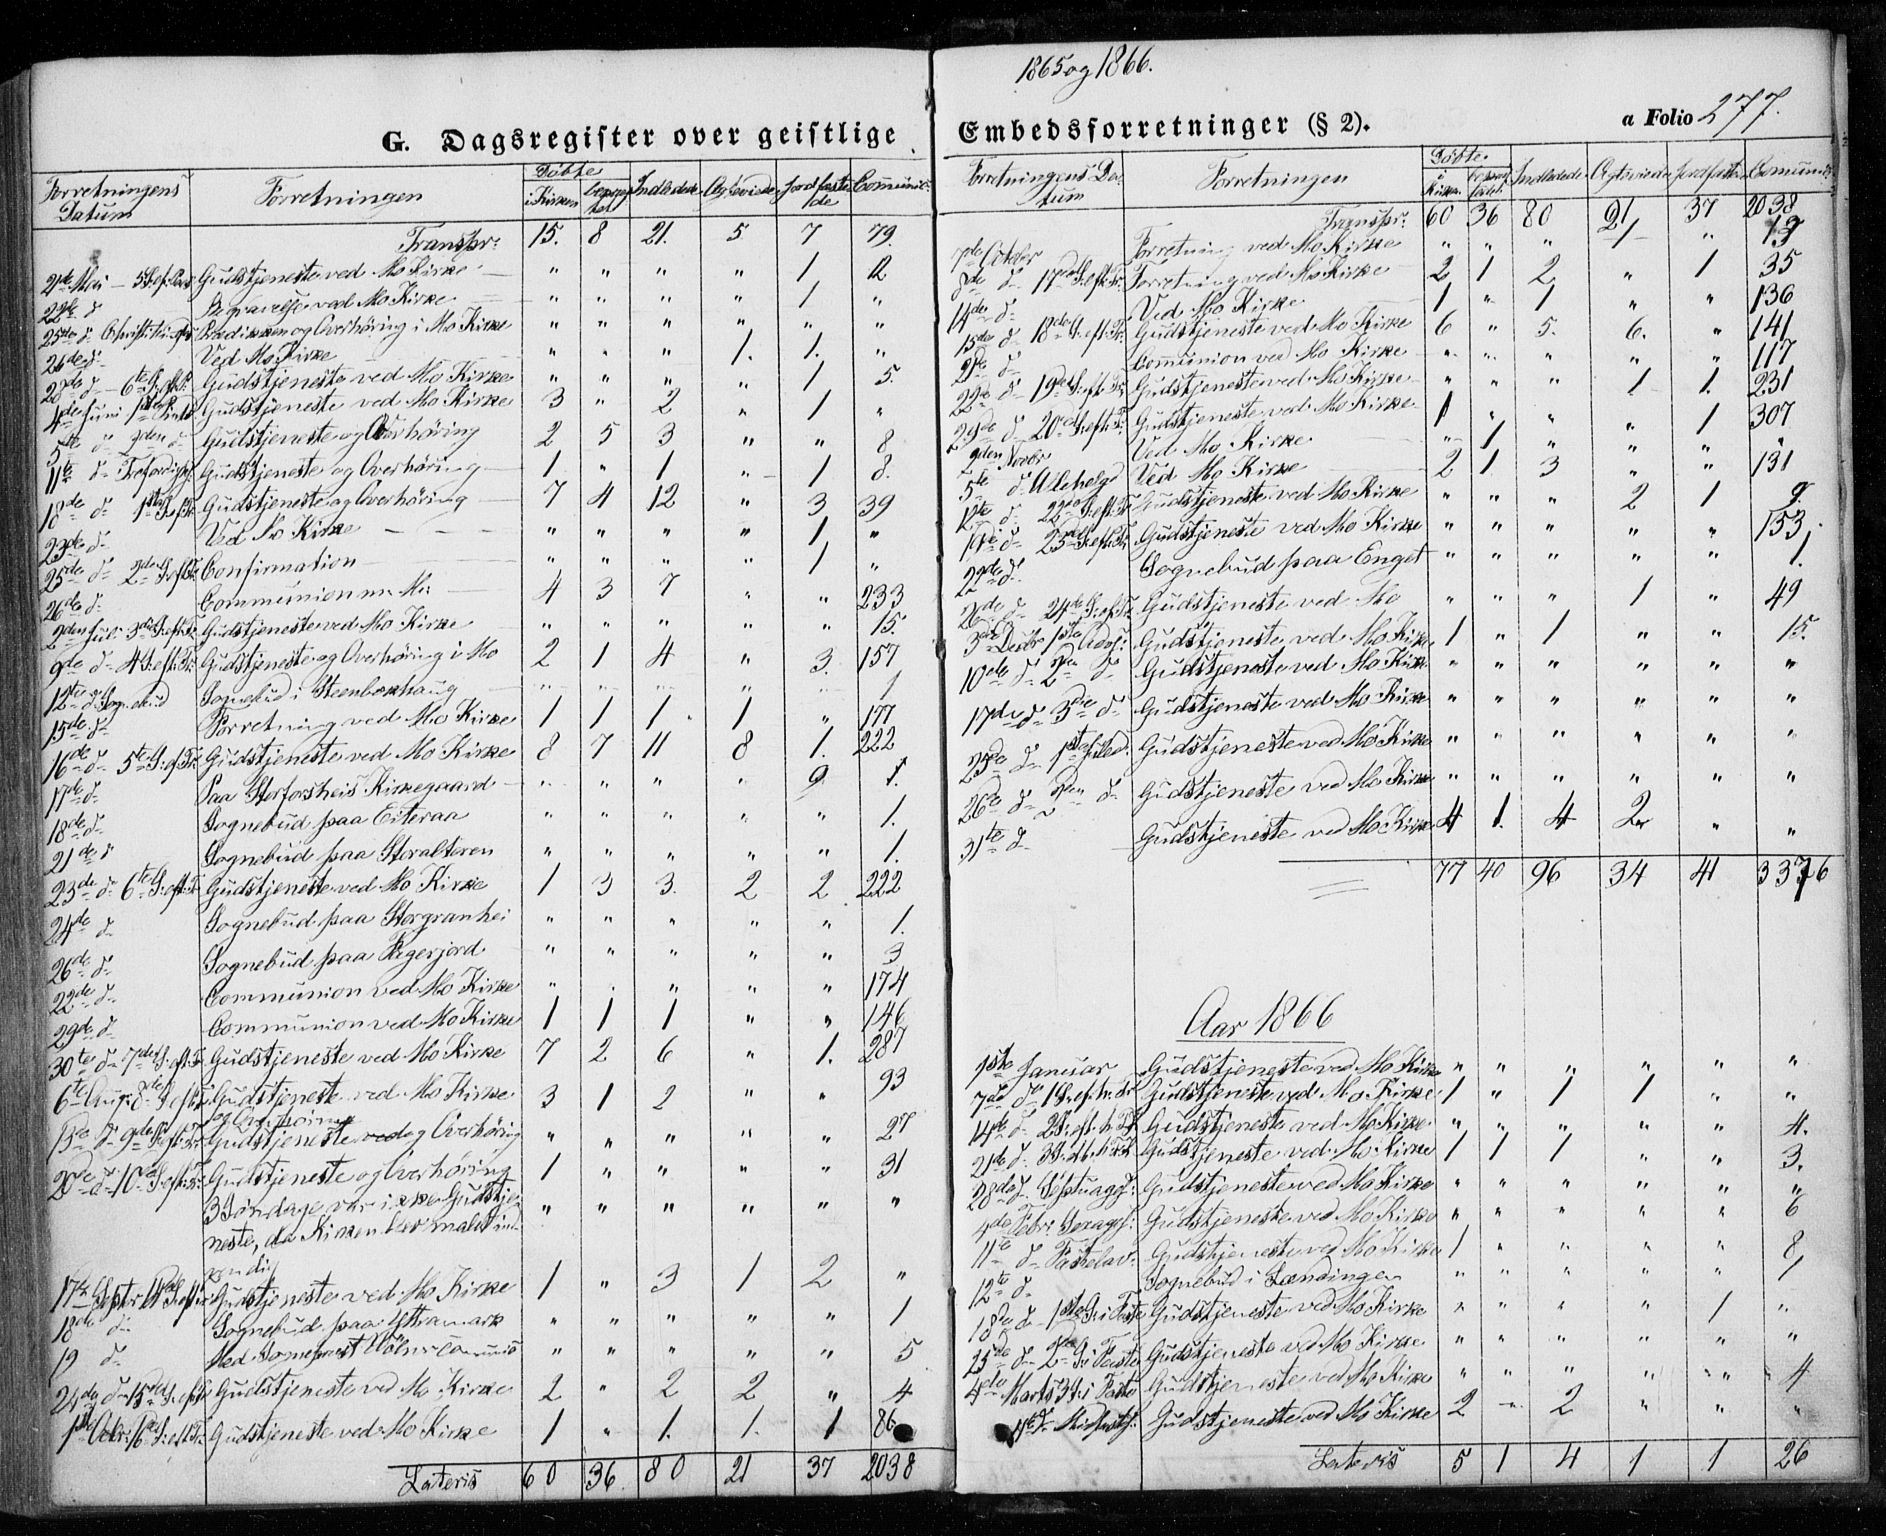 1865 og 1866.
G. Dagsregister over geistlige Embedsforretninger (§ 2). a Folio 277.
Forretningens Datum Forretningen Döbte i Kirken Indledede Ægteviede Jordfæstede Communic:
Transpr: 15. 8 21. 5 7 79.
21de Mai - 5 S. ef. Paas Gudstjeneste ved Mo Kirke " " " " 1 12
22de d Begravelse ved Mo Kirke " " " " 1 "
25de d. Christi Him og Overhöring i Mo Kirke " " " " " "
26de d. Ved Mo Kirke " " " 1. 1. "
28de d - 6te S. ef. P. Gudstjeneste ved Mo Kirke " " " " 1 5.
4de Juni 1ste Pinse Gudstjeneste ved Mo Kirke 3 " 2 " 1 "
5te d 2den d Gudstjeneste og Overhöring 2 5 3 " " 8
11te d. Trefoldigh. Gudstjeneste og Overhöring 1 " 1 " 1 8.
18de d. 1ste S. ef. Tr Gudstjeneste og Overhöring 7 4 12 " 3 39
23de d. Ved Mo Kirke " " " " 1 "
25de d. 2den S. ef. Tr. Confirmation " " " " 1 "
26de d. Communion 4 3 7 " " 233
2den Juli 3die S. eft. Tr. Gudstjeneste ved Mo Kirke " " " " " 15.
9de d. 4 S. eft. Tr. Gudstjeneste og Overhöring i Mo 2 1 4 " 3. 157
12te d Sognebud Sognebud i Steenboxhaug " " " " " 1
15de d. Forretning ved Mo Kirke 1 1 1 1 " 177
16de d. 5te S. ef. Tr. Gudstjeneste ved Mo Kirke 8 7 11 8 1. 222
17de d. Paa Storforsheis Kirkegaard " " " " 9. 1.
18de d. Sognebud paa Eiteraa " " " " " 1.
21de d Sognebud paa Storalteren " " " " " 1.
23de d. 6te S. eft. Tr Gudstjeneste ved Mo Kirke 1 3 3. 2 2 222
24de d. Sognebud paa Storgranhei " " " " " 1.
26de d. Sognebud paa Hagerjord " " " " " 3
22de d. Communion ved Mo Kirke " " " " " 174
29de d. Communion ved Mo Kirke 1 1 1 " " 146
30te d. 7de S. eft. Tr Gudstjeneste ved Mo Kirke 7 2 6 " 1. 287
6te Aug. 8de S. eft. Tr Gudstjeneste ved Mo Kirke 3 1 2 " " 93
og Overhöring
13de d. 9de S. eft. Tr. Gudstjeneste ved og Overhöring " " " " " 27
20de d. 10de S. eft. Tr. Gudstjeneste og Overhöring 1 " " " " 31
3 Söndage var ikke Gudstje- " " " " " "
neste, da Kirken blev malet ind-
vendig
17de Septr S. eft Tr Gudstjeneste ved Mo Kirke 1 " 3 1 2 "
18de d. Sognebud paa Ytteramark " " " " " 1
19 d. Ved Sognepræst communic " " " " " 5
24de d. 15de S. eft. Gudstjeneste ved Mo Kirke 2 " 2 2 " 4
1ste Octbr. 16de S. eft. Tr. Gudstjeneste ved Mo Kirke 1 " 1. 1. 1 86
Lateris 60 36. 80 21 37 2038
Forretningens Datum Forretningen Döbte. i Kirken Indledede Ægteviede Jordfæstede Communic
Transpr: 60 36 80 21 37 2038
7de October Forretning ved Mo Kirke " " " 1 " 19
8de d. 17de S. eft. Tr. Forretning ved Mo Kirke 2 1 2 " 1 35
14de d. Ved Mo Kirke 1 " 1 " " 136
15de d. 18de S. eft. Tr. Gudstjeneste ved Mo Kirke 6 " 5. 6. " 141
21de d. Communion ved Mo Kirke " " " " " 117
22de d. 19de S. eft. Tr. Gudstjeneste ved Mo Kirke " " " 1 1. 231
29de d. 20de S. eft. Tr. Gudstjeneste ved Mo Kirke 1 " " " 1 307
2den Novbr Ved Mo Kirke " 1 " " " "
5te d. Allehelgd Ved Mo Kirke 2 1 3 " " 131
12te d. 22de S. eft. Tr Gudstjeneste ved Mo Kirke " " " 2 1 9.
19de d. 23de S. eft. Tr Gudstjeneste ved Mo Kirke " " " " " 153.
22de d. Sognebud paa Enget " " " " " 1.
26de d. 24de S. ef. Tr. Gudstjeneste ved Mo " " " 1 " 49
3die Decbr 1ste Adv. Gudstjeneste ved Mo Kirke 1 " 1 " " 15.
10de d. 2den d. Gudstjeneste ved Mo Kirk. " " " " " "
17de d. 3die d. Gudstjeneste ved Mo Kirke " " " " " "
25de d. 1ste Juled. Gudstjeneste ved Mo Kirke " " " " " "
26de d. 2den d. Gudstjeneste ved Mo Kirke " " " " " "
31te d Gudstjeneste ved Mo Kirke 4 1. 4 2 " "
77 40 96 34 41 3376
Aar 1866
1ste Januar Gudstjeneste ved Mo Kirke " " " " " "
7de d. 1 S. ef. Gudstjeneste ved Mo Kirke 1 " 1 1 " "
14de d. 2 S. eft. Gudstjeneste ved Mo Kirke " " " " " 4.
21de d. 3 S. Gudstjeneste ved Mo Kirke 1 1 1 " " 3.
28de d. Septuages. Gudstjeneste ved Mo Kirke " " " " " "
4de Febr. Sexages. Gudstjeneste ved Mo Kirke " " " " " 6
11te d. Fastelav. Gudstjeneste ved Mo Kirke 1 " " " " 8,
12te d. Sognebud i Lændingen " " " " " 1
18de d. 1ste S. i Faste Gudstjeneste ved Mo Kirke " " " " 1 "
25de d. 2den S. i Faste Gudstjeneste ved Mo Kirke " " " " " "
4de Marts 3 S. i Faste Gudstjeneste ved Mo Kirke " " " " " 4
11te d. Midfaste Gudstjeneste ved Mo Kirke 2 " 2 " " "
Lateris 5 1 4 1 1 26